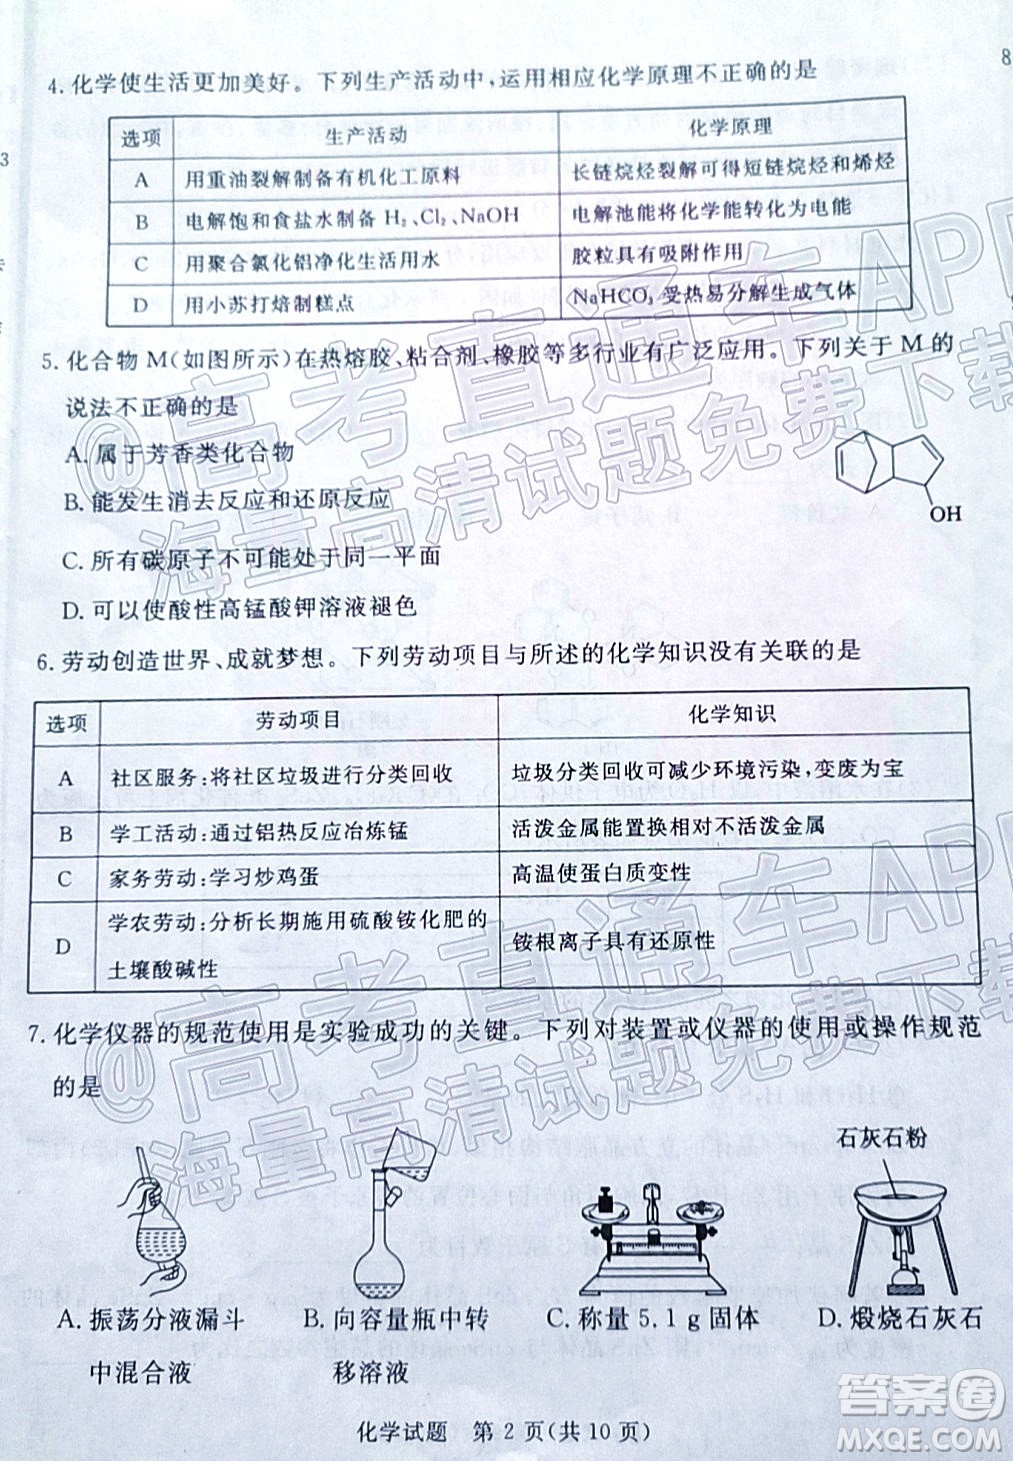 4. 化学使生活更加美好。下列生产活动中,运用相应化学原理不正确的是
选项 生产活动 化学原理
A 用重油裂解制备有机化工原料 长链烷烃裂解可得短链烷烃和烯烃
B 电解饱和食盐水制备 H₂、Cl₂、NaOH 电解池能将化学能转化为电能
C 用聚合氯化铝净化生活用水 胶粒具有吸附作用
D 用小苏打焙制糕点 NaHCO₃ 受热易分解生成气体
5. 化合物 M(如图所示)在热熔胶、粘合剂、橡胶等多行业有广泛应用。下列关于 M 的
说法不正确的是
A. 属于芳香类化合物
B. 能发生消去反应和还原反应
C. 所有碳原子不可能处于同一平面
D. 可以使酸性高锰酸钾溶液褪色
OH
6. 劳动创造世界、成就梦想。下列劳动项目与所述的化学知识没有关联的是
选项 劳动项目 化学知识
A 社区服务:将社区垃圾进行分类回收 垃圾分类回收可减少环境污染,变废为宝
B 学工活动:通过铝热反应冶炼锰 活泼金属能置换相对不活泼金属
C 家务劳动:学习炒鸡蛋 高温使蛋白质变性
D 学农劳动:分析长期施用硫酸铵化肥的
土壤酸碱性 铵根离子具有还原性
7. 化学仪器的规范使用是实验成功的关键。下列对装置或仪器的使用或操作规范
的是
石灰石粉
A. 振荡分液漏斗
中混合液
B. 向容量瓶中转
移溶液
C. 称量 5.1 g 固体
D. 煅烧石灰石
化学试题 第 2 页(共 10 页)
@高考直通车APP
海量高清试题免费下载
@高考直通车APP
海量高清试题免费下载
答案圈
MXQE.COM
3
8